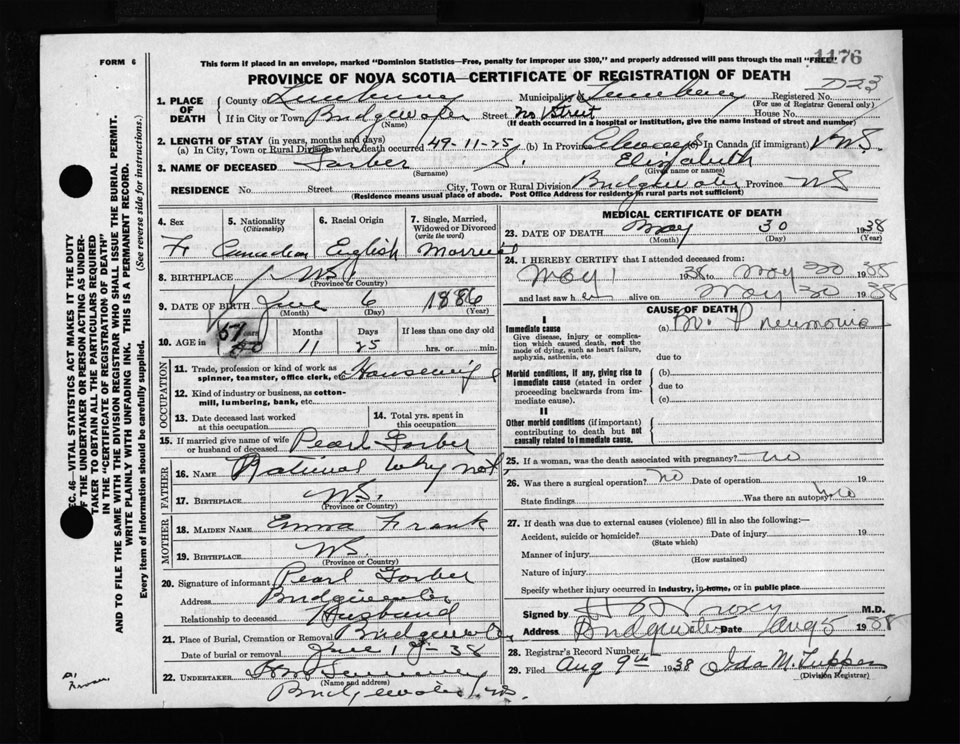 1176
FORM 6
This form if placed in an envelope, marked "Dominion Statistics—Free, penalty for improper use $300," and properly addressed will pass through the mail "FREE"
PROVINCE OF NOVA SCOTIA—CERTIFICATE OF REGISTRATION OF DEATH
1. PLACE OF DEATH
County of Lunenburg Municipality of Lunenburg Registered No. 723
(For use of Registrar General only)
If in City or Town Bridgewater Street No Street House No.
(Name) (If death occurred in a hospital or institution, give the name instead of street and number)
2. LENGTH OF STAY (in years, months and days)
(a) In City, Town or Rural Division where death occurred 49-11-25 (b) In Province Always In Canada (if immigrant) NS.
3. NAME OF DECEASED S. Elizabeth
(Surname) (Given name or names)
RESIDENCE No. Street City, Town or Rural Division Bridgewater Province NS
(Residence means usual place of abode. Post Office Address for residents in rural parts not sufficient)
4. Sex F
5. Nationality (Citizenship) Canadian
6. Racial Origin English
7. Single, Married, Widowed or Divorced (write the word) Married
8. BIRTHPLACE NS.
(Province or Country)
9. DATE OF BIRTH June 6 1886
(Month) (Day) (Year)
10. AGE in 51 Years Months 11 Days 25 If less than one day old hrs. or min.
OCCUPATION
11. Trade, profession or kind of work as spinner, teamster, office clerk, etc. Housewife
12. Kind of industry or business, as cotton-mill, lumbering, bank, etc.
13. Date deceased last worked at this occupation
14. Total yrs. spent in this occupation
15. If married give name of wife or husband of deceased Pearl
FATHER
16. NAME Whynot
17. BIRTHPLACE NS.
(Province or Country)
MOTHER
18. MAIDEN NAME Emma Frank
19. BIRTHPLACE NS.
(Province or Country)
20. Signature of informant Pearl
Address Bridgewater
Relationship to deceased Husband
21. Place of Burial, Cremation or Removal Bridgewater
Date of burial or removal June 1 - 38
22. UNDERTAKER
(Name and address)
Bridgewater, NS.
MEDICAL CERTIFICATE OF DEATH
23. DATE OF DEATH May 30 1938
(Month) (Day) (Year)
24. I HEREBY CERTIFY that I attended deceased from:
May 1 1938 to May 30 1938
and last saw her alive on May 30 1938
CAUSE OF DEATH
I
Immediate cause (a) Br. Pneumonia
Give disease, injury or complication which caused death, not the mode of dying, such as heart failure, asphyxia, asthenia, etc. due to
Morbid conditions, if any, giving rise to immediate cause (stated in order proceeding backwards from immediate cause). (b)
due to
(c)
II
Other morbid conditions (if important) contributing to death but not causally related to immediate cause.
25. If a woman, was the death associated with pregnancy? no
26. Was there a surgical operation? no Date of operation 19
State findings Was there an autopsy? no
27. If death was due to external causes (violence) fill in also the following:—
Accident, suicide or homicide? Date of injury 19
(State which)
Manner of injury
(How sustained)
Nature of injury
Specify whether injury occurred in industry, in home, or in public place
Signed by M.D.
Address Bridgewater Date Aug 5 1938
28. Registrar's Record Number
29. Filed Aug 9th 1938 Ida M. Tupper
(Division Registrar)
SEC. 46—VITAL STATISTICS ACT MAKES IT THE DUTY
OF THE UNDERTAKER OR PERSON ACTING AS UNDER-
TAKER TO OBTAIN ALL THE PARTICULARS REQUIRED
IN THE "CERTIFICATE OF REGISTRATION OF DEATH"
AND TO FILE THE SAME WITH THE DIVISION REGISTRAR WHO SHALL ISSUE THE BURIAL PERMIT.
WRITE PLAINLY WITH UNFADING INK. THIS IS A PERMANENT RECORD.
Every item of information should be carefully supplied. (See reverse side for instructions.)